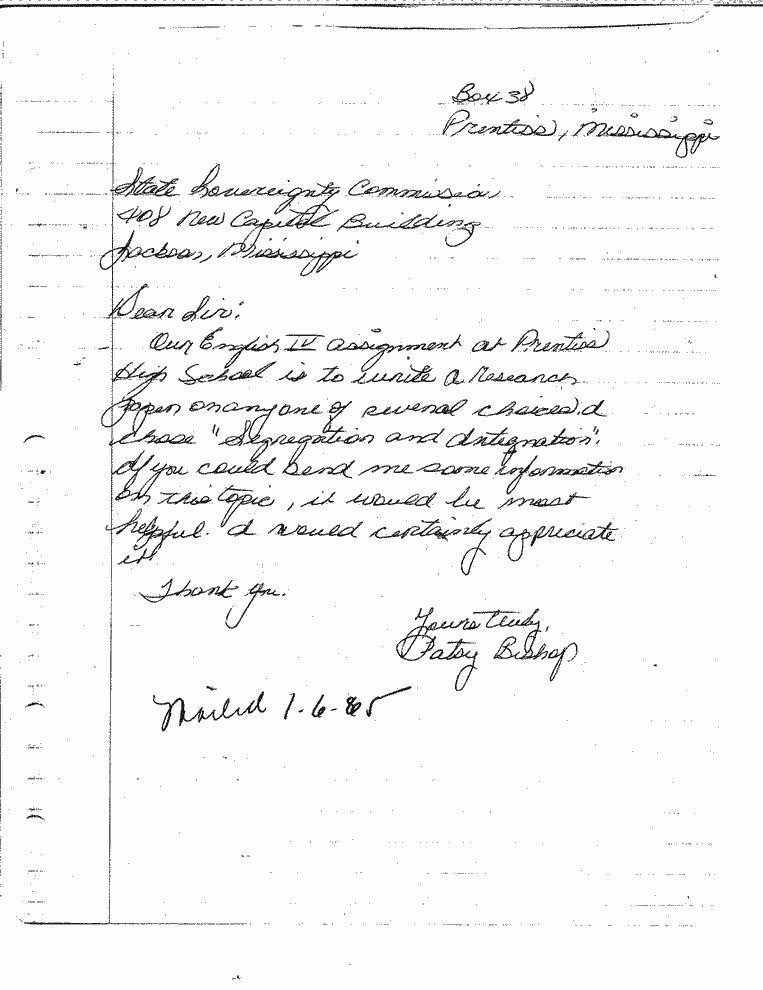 Box 38
Prentiss, Mississippi
State Sovereignty Commission
408 New Capitol Building
Jackson, Mississippi
Dear Sir:
Our English IV assignment at Prentiss
High School is to write a research
paper on any one of several choices. I
chose "Segregation and Integration".
If you could send me some information
on this topic, it would be most
helpful. I would certainly appreciate
it!
Thank you.
Yours truly,
Patsy Bishop
Mailed 1-6-65